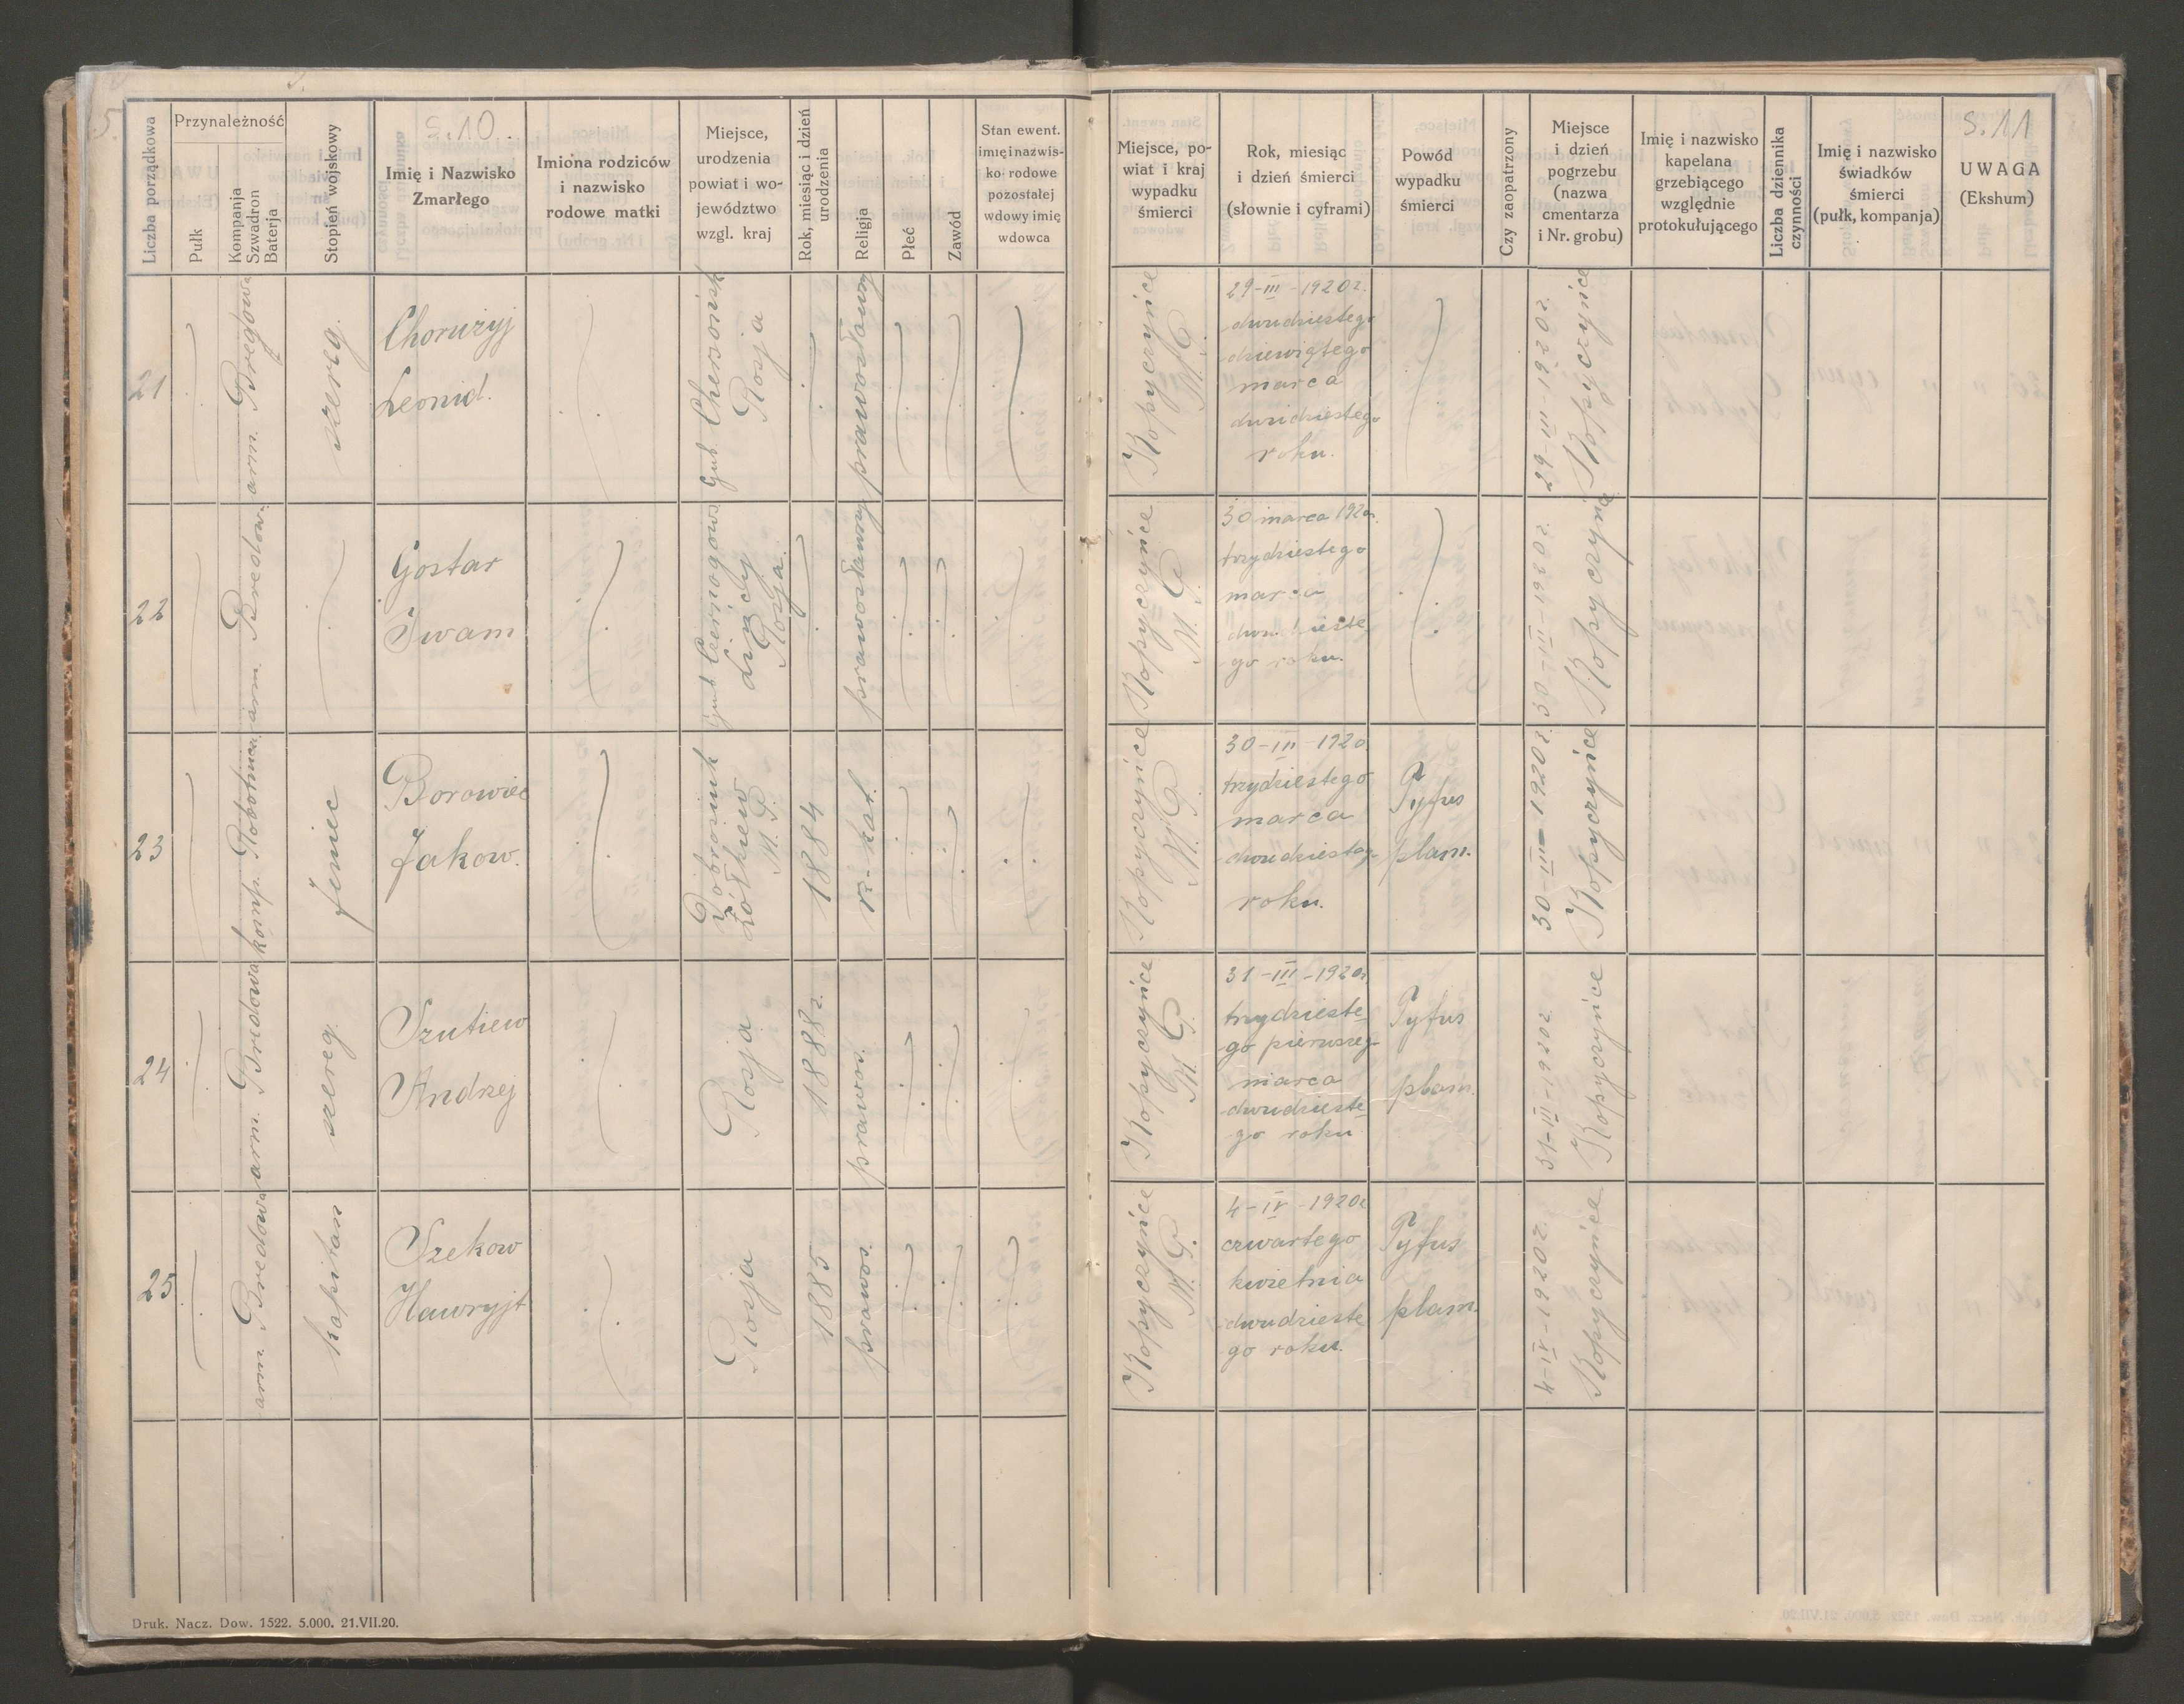 S. 10.
S. 11
Liczba porządkowa
Przynależność
Pułk
Kompanja
Szwadron
Baterja
Stopień wojskowy
Imię i Nazwisko
Zmarłego
Imiona rodziców
i nazwisko
rodowe matki
Miejsce,
urodzenia
powiat i wo-
jewództwo
wzgl. kraj
Rok, miesiąc i dzień
urodzenia
Religja
Płeć
Zawód
Stan ewent.
imię i nazwis-
ko rodowe
pozostałej
wdowy imię
wdowca
Miejsce, po-
wiat i kraj
wypadku
śmierci
Rok, miesiąc
i dzień śmierci
(słownie i cyframi)
Powód
wypadku
śmierci
Czy zaopatrzony
Miejsce
i dzień
pogrzebu
(nazwa
cmentarza
i Nr. grobu)
Imię i nazwisko
kapelana
grzebiącego
względnie
protokułującego
Liczba dziennika
czynności
Imię i nazwisko
świadków
śmierci
(pułk, kompanja)
UWAGA
(Ekshum)
21
arm. Bregowa
szereg.
Choružyj
Leonid.
Gub. Chersońsk
Rosja
prawosławny
Kopyczyńce
M. P.
29-III-1920 r.
dwudziestego
dziewiątego
marca
dwudziestego
roku.
29-III-1920 r.
Kopyczyńce
22
arm. Bredow.
Gostar
Iwam
Rosja
prawosławny
Kopyczyńce
M. P.
30 marca 1920 r.
trzydziestego
marca
go roku.
30-III-1920 r.
Kopyczyńce
23
komp. Robotnicza
Jeniec
Borowiec
Jakow.
Żółkiew
M. P.
1884
R.-kat.
Kopyczyńce
M. P.
30-III-1920
trzydziestego
marca
dwudziesteg.
roku.
Tyfus
plam.
30-III-1920 r.
Kopyczyńce
24
arm. Bredowa
szereg.
Szutiew
Andrzej
Rosja
1888 r.
prawos.
Kopyczyńce
M. P.
31-III-1920 r.
trzydzieste-
go pierwszeg-
marca
dwudzieste-
go roku
Tyfus
plam.
31-III-1920 r.
Kopyczyńce
25
arm. Bredowa
kapitan
Szekow
Hawryjł
Rosja
1885
prawos.
Kopyczyńce
M. P.
4-IV-1920 r
czwartego
kwietnia
dwudzieste
go roku.
Tyfus
plam.
4-IV-1920 r.
Kopyczyńce
Druk. Nacz. Dow. 1522. 5.000. 21.VII.20.